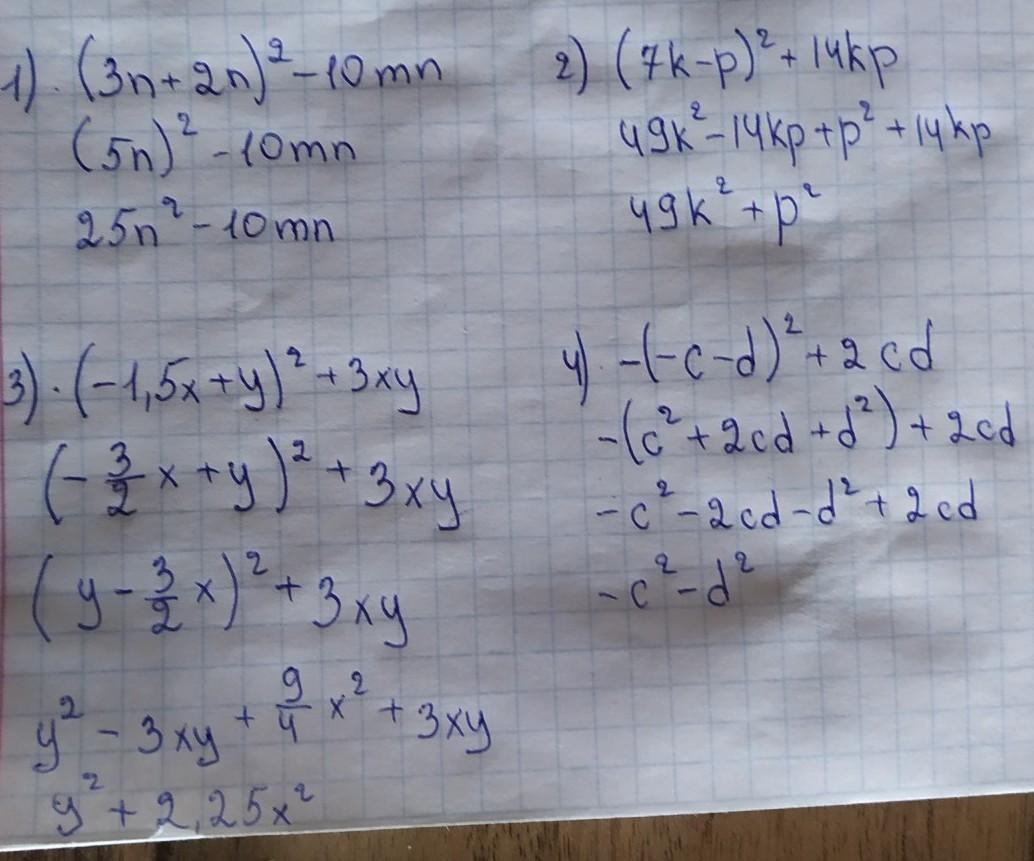 1). (3n+2n)² - 10mn
(5n)² - 10mn
25n² - 10mn
2) (7k-p)² + 14kp
49k² - 14kp + p² + 14kp
49k² + p²
3). (-1,5x+y)² + 3xy
(-3/2 x + y)² + 3xy
(y - 3/2 x)² + 3xy
y² - 3xy + 9/4 x² + 3xy
y² + 2,25x²
4). -(-c-d)² + 2cd
-(c² + 2cd + d²) + 2cd
-c² - 2cd - d² + 2cd
-c² - d²